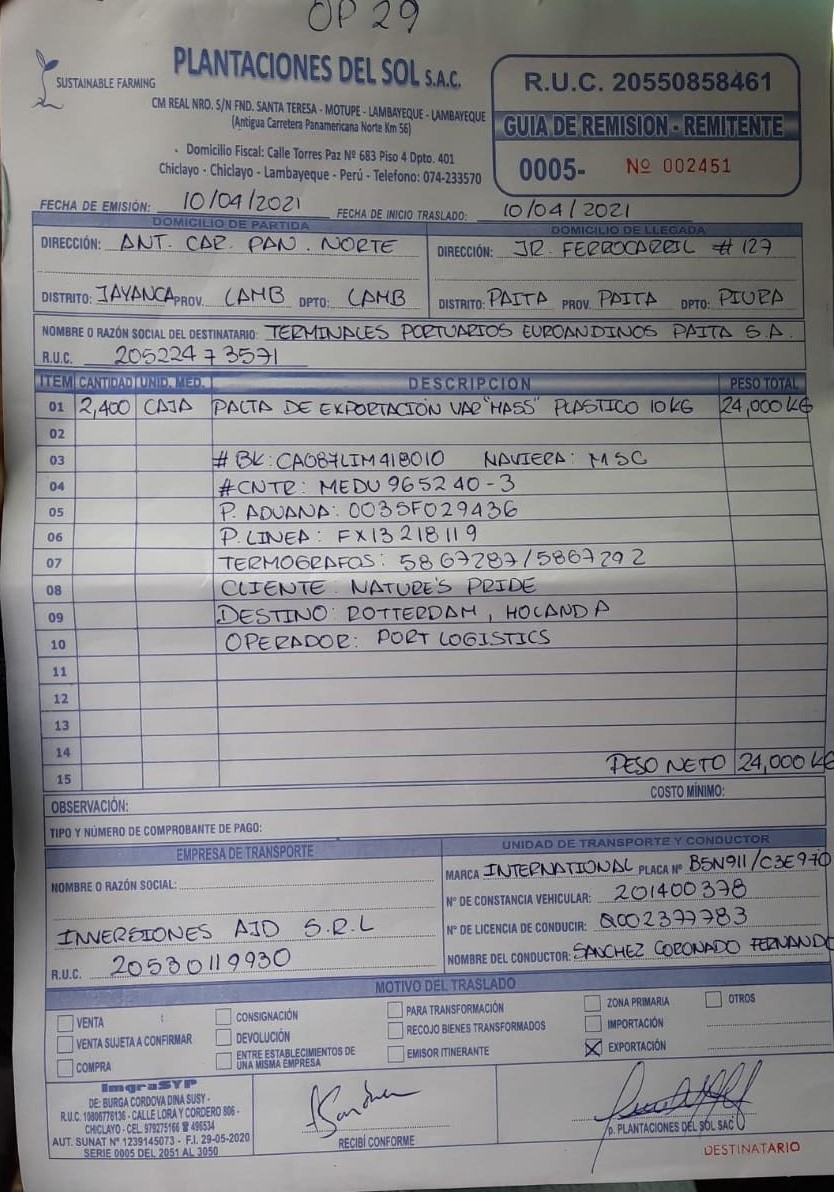 OP 29
SUSTAINABLE FARMING
PLANTACIONES DEL SOL S.A.C.
CM REAL NRO. S/N FND. SANTA TERESA - MOTUPE - LAMBAYEQUE - LAMBAYEQUE
(Antigua Carretera Panamericana Norte Km 56)
Domicilio Fiscal: Calle Torres Paz Nº 683 Piso 4 Dpto. 401
Chiclayo - Chiclayo - Lambayeque - Perú - Telefono: 074-233570
R.U.C. 20550858461
GUIA DE REMISION - REMITENTE
0005- Nº 002451
FECHA DE EMISIÓN: 10/04/2021 FECHA DE INICIO TRASLADO: 10/04/2021
DOMICILIO DE PARTIDA
DIRECCIÓN: ANT. CAR. PAN. NORTE
DISTRITO: JAYANCA PROV. LAMB DPTO: LAMB
DOMICILIO DE LLEGADA
DIRECCIÓN: JR. FERROCARRIL # 127
DISTRITO: PAITA PROV. PAITA DPTO: PIURA
NOMBRE O RAZÓN SOCIAL DEL DESTINATARIO: TERMINALES PORTUARIOS EUROANDINOS PAITA S.A.
R.U.C. 20522473571
ITEM CANTIDAD UNID. MED. DESCRIPCION PESO TOTAL
01 2,400 CAJA PALTA DE EXPORTACIÓN VAR "HASS" PLASTICO 10 KG 24,000 KG
02
03 # BK: CA087LIM418010 NAVIERA: MSC
04 #CNTR: MEDU 965240-3
05 P. ADUANA: 0035F029436
06 P. LINEA: FX13218119
07 TERMOGRAFOS: 5867287/5867292
08 CLIENTE: NATURE'S PRIDE
09 DESTINO: ROTTERDAM, HOLANDA
10 OPERADOR: PORT LOGISTICS
11
12
13
14 PESO NETO 24,000 KG
15
COSTO MÍNIMO:
OBSERVACIÓN:
TIPO Y NÚMERO DE COMPROBANTE DE PAGO:
EMPRESA DE TRANSPORTE
NOMBRE O RAZÓN SOCIAL:
INVERSIONES AJD S.R.L
R.U.C. 20530119930
UNIDAD DE TRANSPORTE Y CONDUCTOR
MARCA INTERNATIONAL PLACA Nº B5N911/C3E970
Nº DE CONSTANCIA VEHICULAR: 201400378
Nº DE LICENCIA DE CONDUCIR: Q002377783
NOMBRE DEL CONDUCTOR: SANCHEZ CORONADO FERNANDO
MOTIVO DEL TRASLADO
VENTA
VENTA SUJETA A CONFIRMAR
COMPRA
CONSIGNACIÓN
DEVOLUCIÓN
ENTRE ESTABLECIMIENTOS DE
UNA MISMA EMPRESA
PARA TRANSFORMACIÓN
RECOJO BIENES TRANSFORMADOS
EMISOR ITINERANTE
ZONA PRIMARIA
IMPORTACIÓN
X EXPORTACIÓN
OTROS
ImgraSYP
DE: BURGA CORDOVA DINA SUSY -
R.U.C. 10806776136 - CALLE LORA Y CORDERO 806 -
CHICLAYO - CEL. 979275166 ☎ 496534
AUT. SUNAT Nº 1239145073 - F.I. 29-05-2020
SERIE 0005 DEL 2051 AL 3050
RECIBÍ CONFORME
p. PLANTACIONES DEL SOL SAC
DESTINATARIO